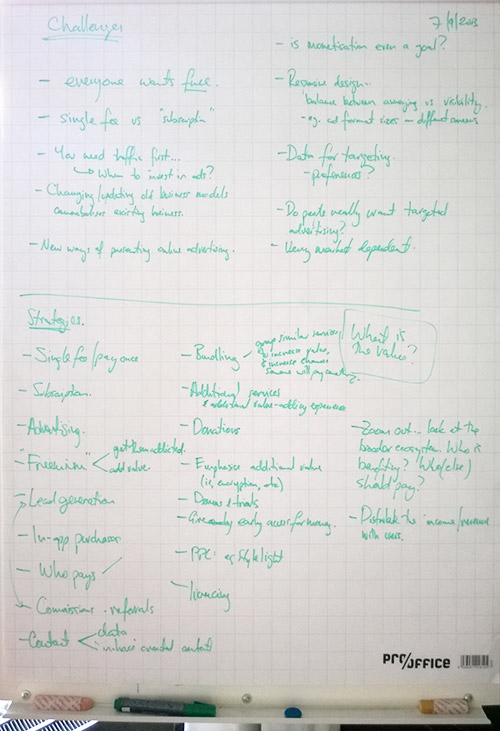 Challenges
7/9/2013
- everyone wants free.
- single fee vs "subscription"
- You need traffic first...
↳ When to invest in ads?
- Changing/updating old business models
cannabalises existing business.
- New ways of presenting online advertising.
- is monetisation even a goal?
- Responsive design...
balance between annoying vs visibility.
- eg. ad format sizes – different screens
- Data for targeting.
- preferences?
- Do people really want targeted
advertising?
- Very market dependent.
Strategies.
- Single fee/pay once
- Subscription.
- Advertising.
- "Freemium" < get them addicted.
add value.
- Lead generation
- In-app purchases
- Who pays
- Comissions - referrals
- Content < data
inhouse created content
- Bundling
group similar services
to increase value,
& increase chances
someone will pay
- Additional services
& additional value-adding experience
- Donations
- Emphasise additional value
(ie, encryption, etc)
- Demos & trials
- Give early access for money.
- PPC: eg Stylelight
- licencing
What is
the value?
- Zoom out... look at the
broader ecosystem. Who is
benefiting? Who (else)
should pay?
- Distribute the income/revenue
with users.
PRO/OFFICE